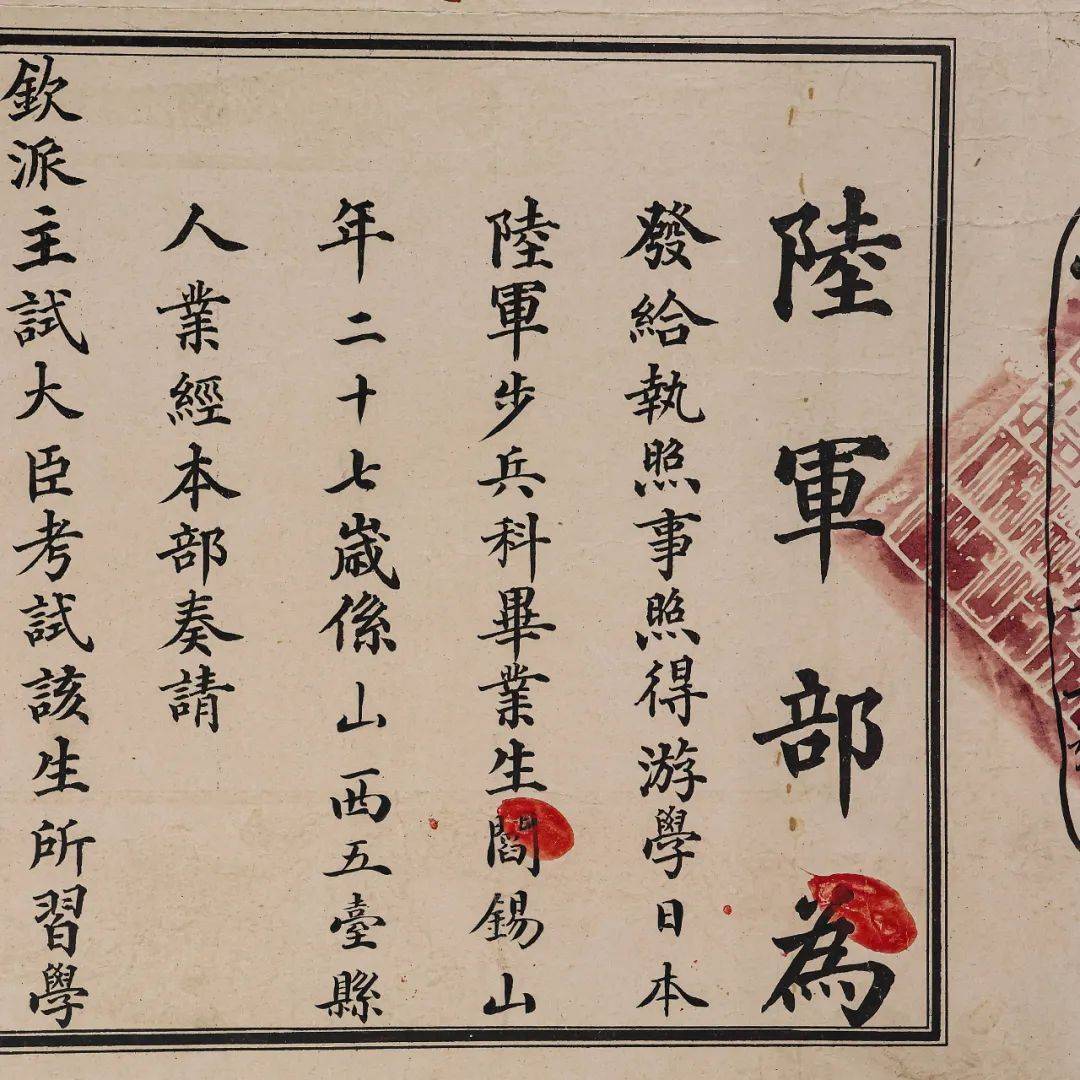 陸軍部為
發給執照事照得游學日本
陸軍步兵科畢業生閻錫山
年二十七歲係山西五臺縣
人業經本部奏請
欽派主試大臣考試該生所習學